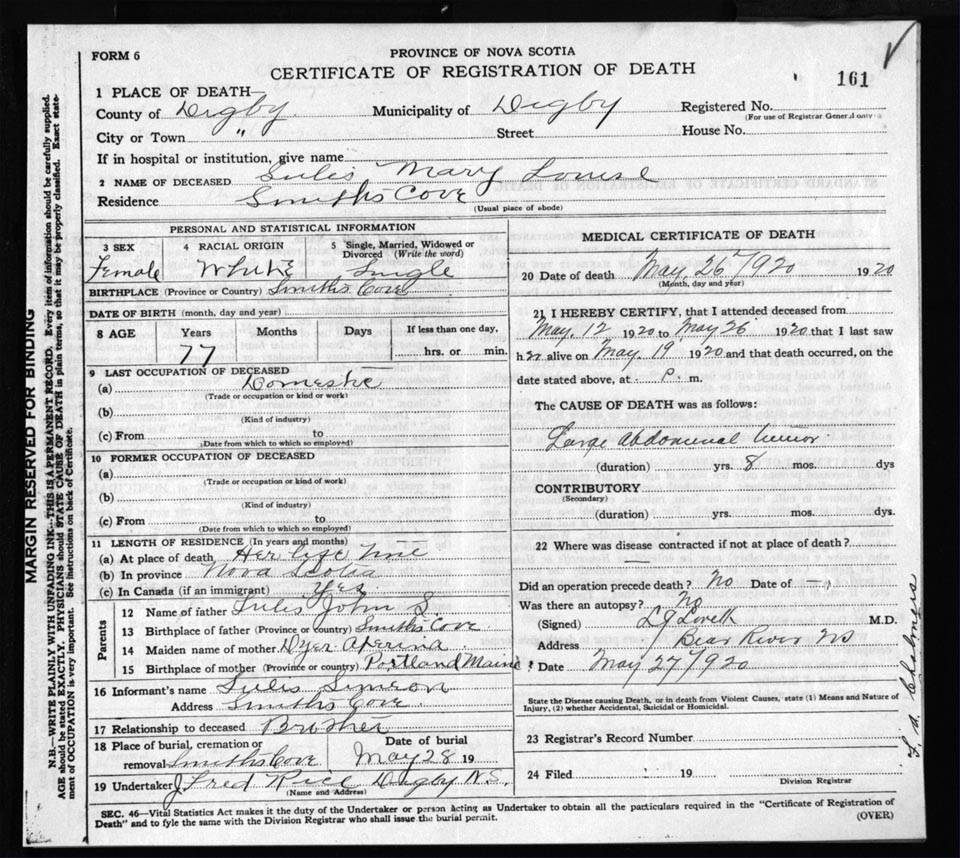 FORM 6
PROVINCE OF NOVA SCOTIA
CERTIFICATE OF REGISTRATION OF DEATH
161
1 PLACE OF DEATH—
County of Digby. Municipality of Digby Registered No.
(For use of Registrar General only)
City or Town " Street House No.
If in hospital or institution, give name
2 NAME OF DECEASED Sulis Mary Louise
Residence Smiths Cove
(Usual place of abode)
PERSONAL AND STATISTICAL INFORMATION
3 SEX 4 RACIAL ORIGIN 5 Single, Married, Widowed or Divorced (Write the word)
Female White Single
BIRTHPLACE (Province or Country) Smiths Cove
DATE OF BIRTH (month, day and year)
8 AGE Years Months Days If less than one day,
77 hrs. or min.
9 LAST OCCUPATION OF DECEASED
(a) Domestic
(Trade or occupation or kind or work)
(b)
(Kind of industry)
(c) From to
(Date from which to which so employed)
10 FORMER OCCUPATION OF DECEASED
(a)
(Trade or occupation or kind of work)
(b)
(Kind of industry)
(c) From to
(Date from which to which so employed)
11 LENGTH OF RESIDENCE (In years and months)
(a) At place of death Her life time
(b) In province Nova Scotia
(c) In Canada (if an immigrant) Yes
Parents
12 Name of father Sulis John S.
13 Birthplace of father (Province or country) Smiths Cove
14 Maiden name of mother Dyer
15 Birthplace of mother (Province or country) Portland Maine
16 Informant's name Sulis Simeon
Address Smiths Cove.
17 Relationship to deceased Brother
18 Place of burial, cremation or removal Smiths Cove Date of burial May 28 19
19 Undertaker J Fred Rice Digby N.S.
(Name and Address)
MEDICAL CERTIFICATE OF DEATH
20 Date of death May 26 1920 1920
(Month, day and year)
21 I HEREBY CERTIFY, that I attended deceased from
May. 12 1920 to May 26 1920 that I last saw
her alive on May 19 1920 and that death occurred, on the
date stated above, at P. m.
The CAUSE OF DEATH was as follows:
Large Abdominal tumor.
(duration) yrs. 8 mos. dys
CONTRIBUTORY
(Secondary)
(duration) yrs. mos. dys.
22 Where was disease contracted if not at place of death?
—
Did an operation precede death? No Date of —
Was there an autopsy? No
(Signed) L J Lovett M.D.
Address Bear River NS
Date May 27 1920
State the Disease causing Death, or in death from Violent Causes, state (1) Means and Nature of
Injury, (2) whether Accidental, Suicidal or Homicidal.
23 Registrar's Record Number
24 Filed 19
Division Registrar
SEC. 46—Vital Statistics Act makes it the duty of the Undertaker or person acting as Undertaker to obtain all the particulars required in the "Certificate of Registration of
Death" and to fyle the same with the Division Registrar who shall issue the burial permit.
(OVER)
MARGIN RESERVED FOR BINDING
N.B.—WRITE PLAINLY WITH UNFADING INK—THIS IS A PERMANENT RECORD. Every item of information should be carefully supplied.
AGE should be stated EXACTLY. PHYSICIANS should STATE CAUSE OF DEATH in plain terms, so that it may be properly classified. Exact state-
ment of OCCUPATION is very important. See instructions on back of Certificate.